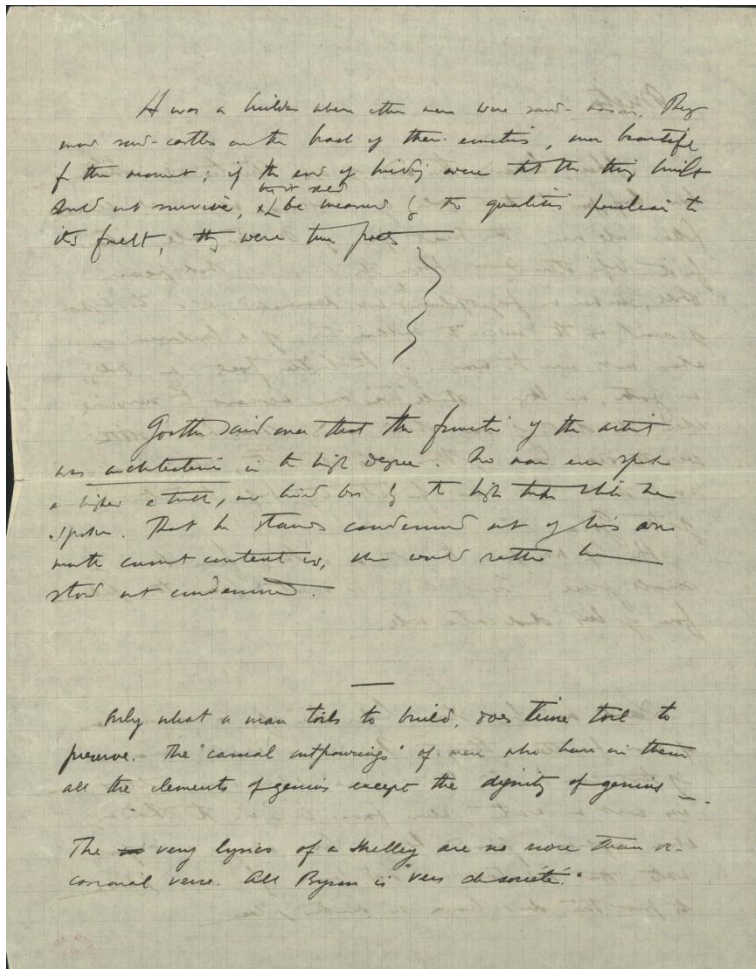 He was a builder where other men were sand-    They
      sand-castles on the     of their emotions, were beautiful
for the moment; if the end of building were that the thing built
should not survive, but it should be measured by the qualities peculiar to
its            , they were true poets
Goethe said once that the function of the artist
was architectonic in the high degree. No man ever spoke
a higher     truth, nor     less by the high truth    he
spoken. That he stands condemned out of his own
mouth cannot content us, we would rather he
stood not condemned.
Only what a man toils to build, does time toil to
preserve. The "casual outpourings" of men who have in them
all the elements of genius except the dignity of genius —.
The very lyrics of a Shelley are no more than oc-
casional verse. All Byron is "vers de société."